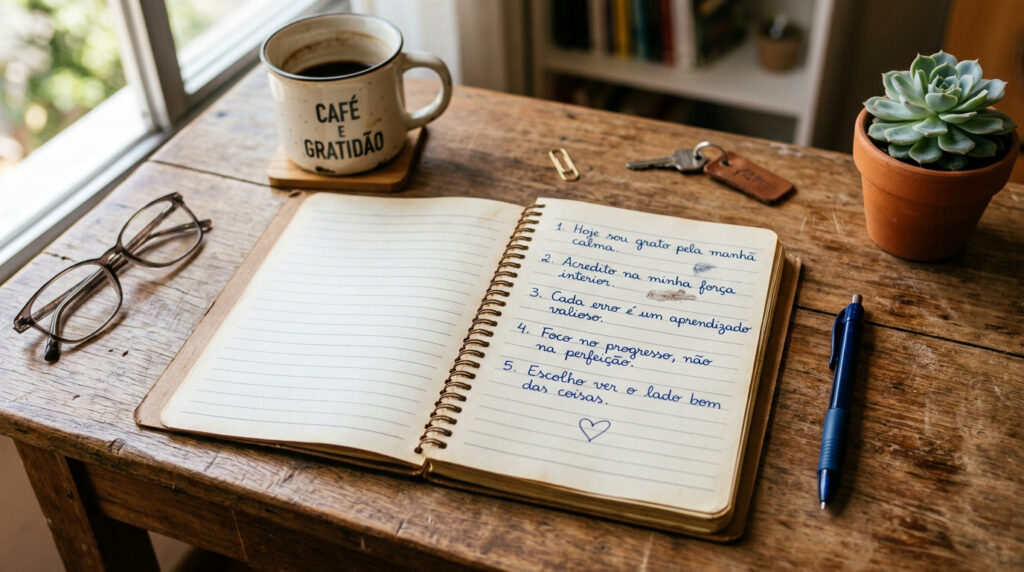 CAFÉ
E
GRATIDÃO
1. Hoje sou grato pela manhã
calma.
2. Acredito na minha força
interior.
3. Cada erro é um aprendizado
valioso.
4. Foco no progresso, não
na perfeição.
5. Escolho ver o lado bom
das coisas.